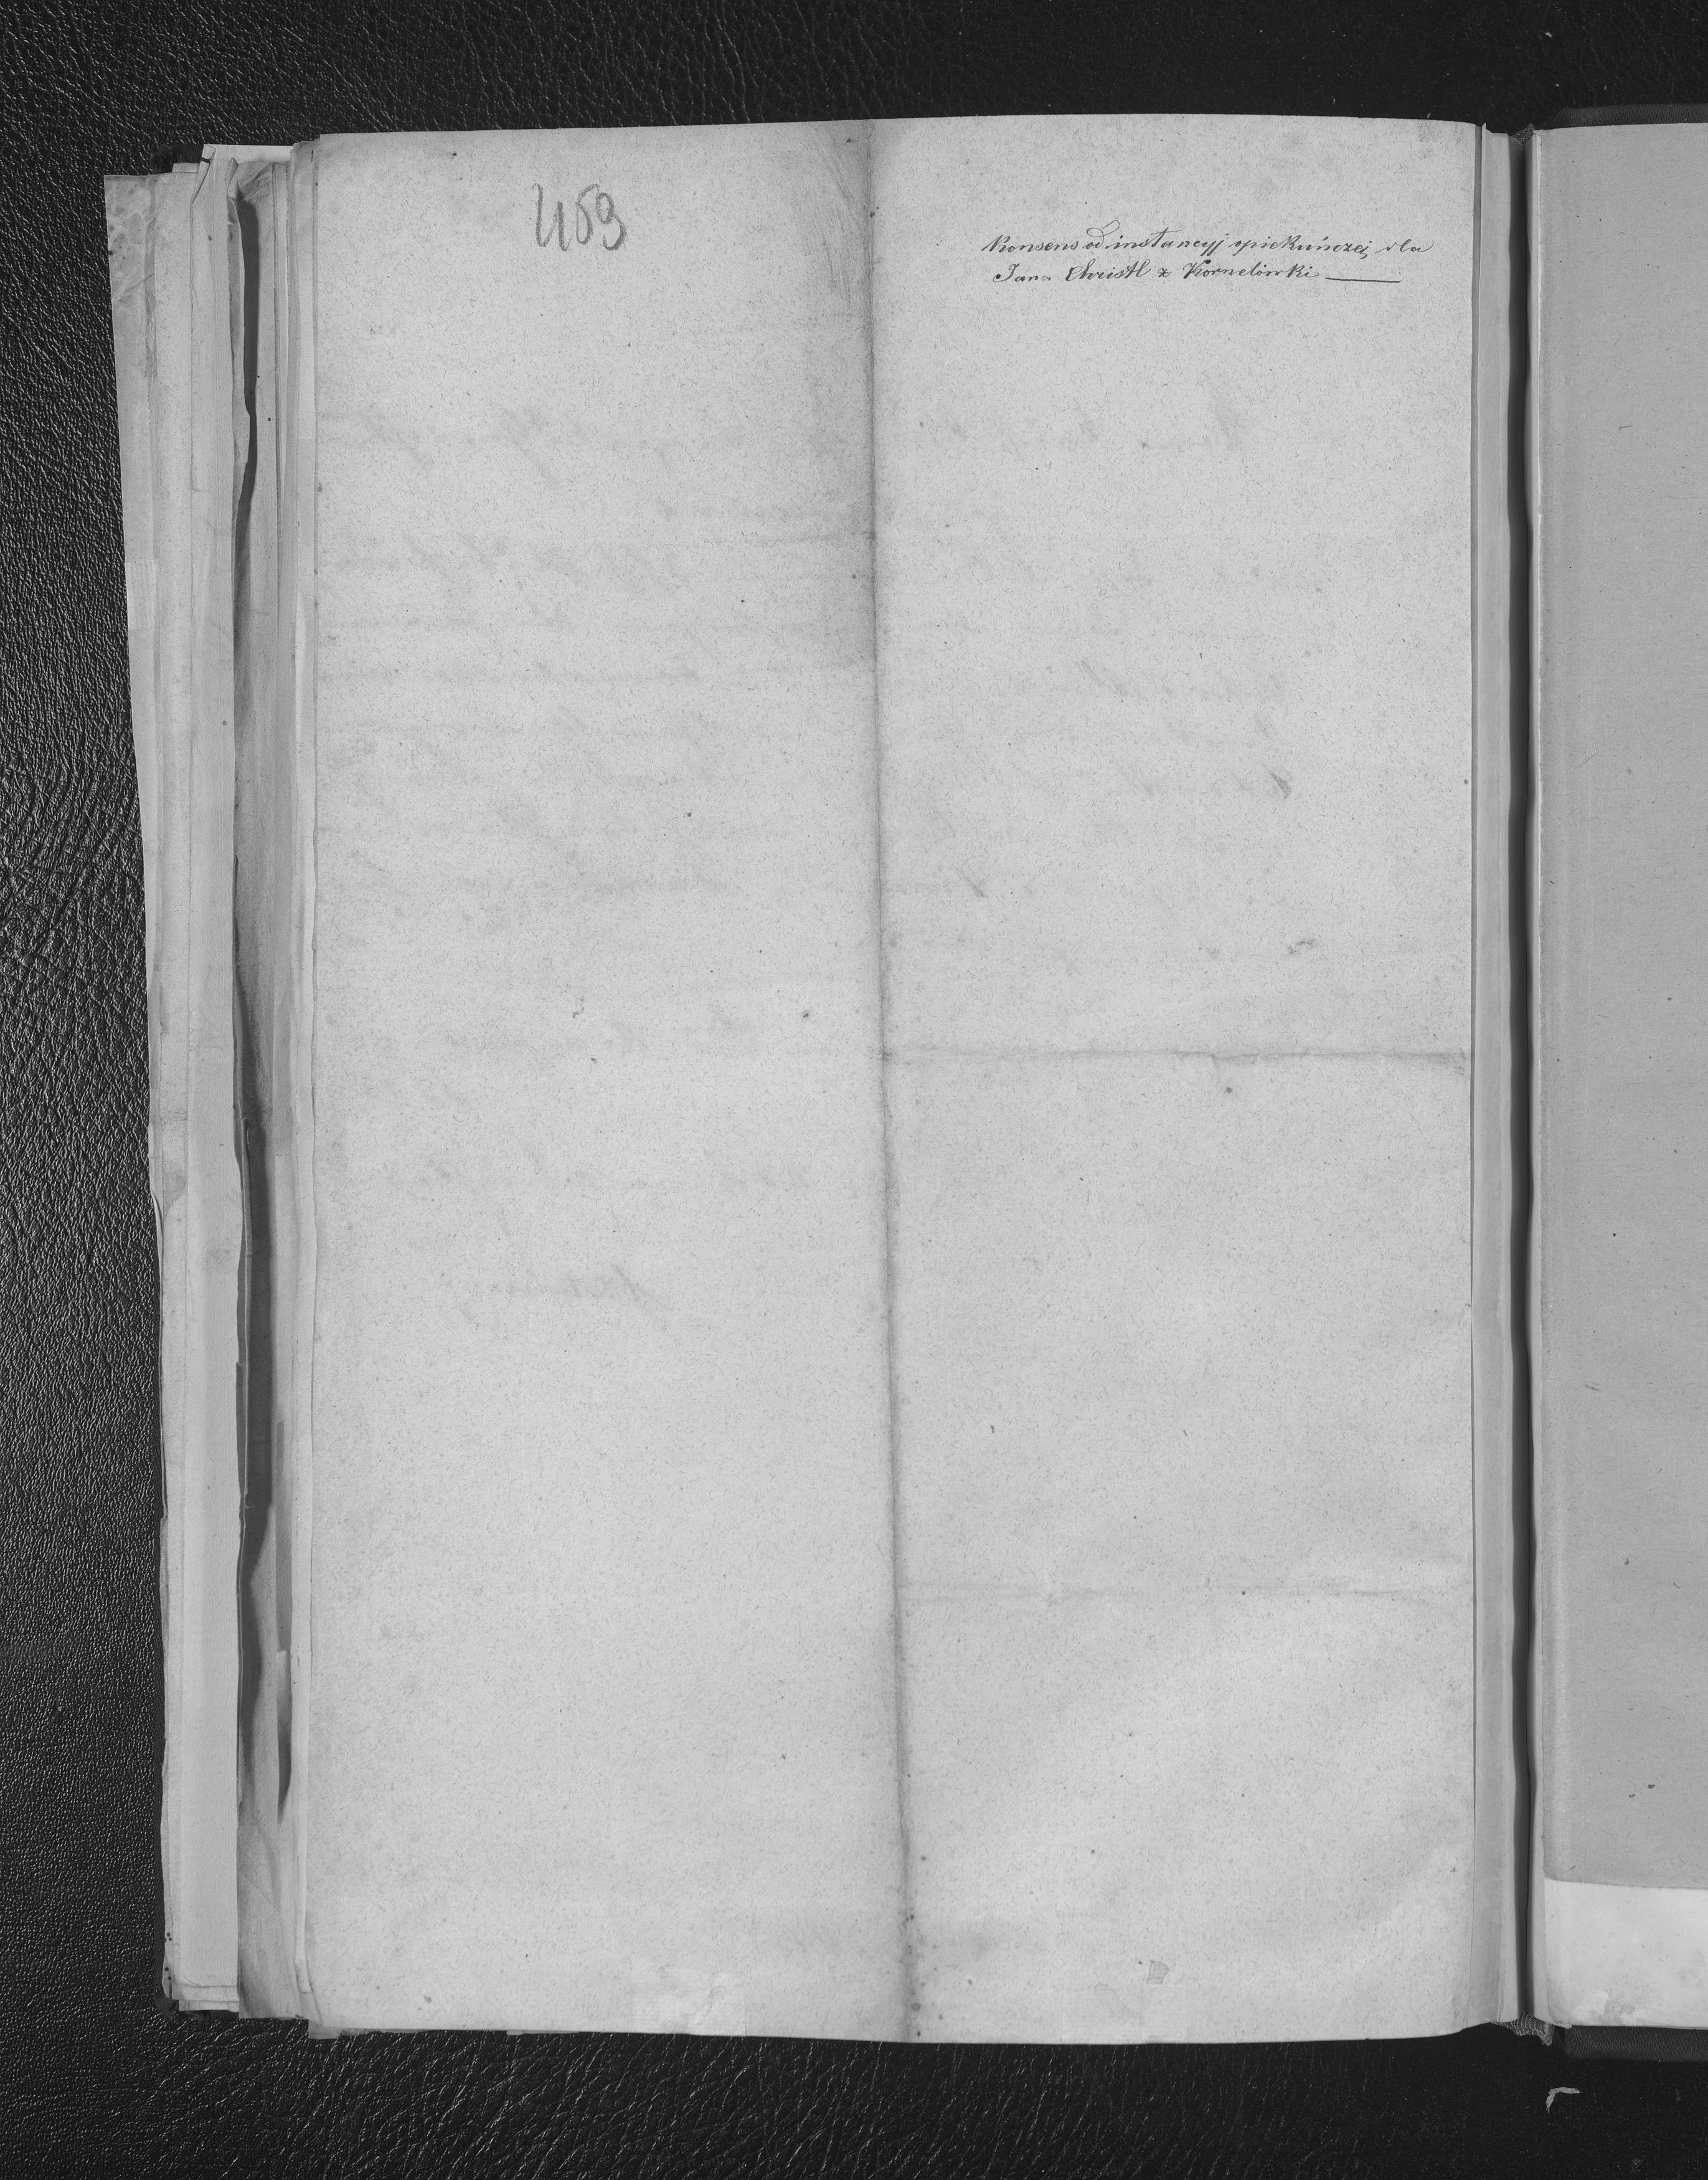 459
Konsens od instancyj opiekuńczej dla
Jana Christl z Kornelówki